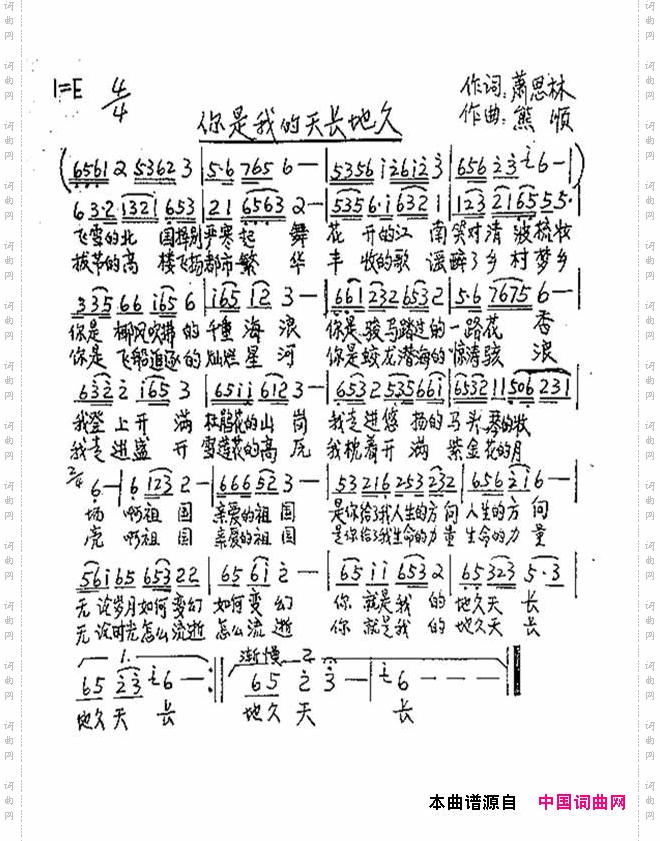 1=E 4/4
你是我的天长地久
作词:萧思林
作曲:熊 顺
(6561 2 5362 3 | 5·6 765 6 — | 5356 i 26i2 3 | 656 2 3 i 6 — |)
6 3·2 1321 653 | 21 6563 2 — | 535 6·i 6321 | 123 2165 5 5·
飞雪的北 国挥别严寒起 舞 花 开的江 南笑对清 波梳妆
拔节的高 楼飞扬都市繁 华 丰 收的歌 谣醉了乡 村梦乡
335 66 i65 6 | i65 i2 3 — | 661 232 6532 | 5·6 7675 6 —
你是 柳风吹拂 的 千重 海 浪 你是 骏马踏过的 一路花 香
你是 飞船追逐的 灿烂 星 河 你是蛟龙潜海的 惊涛骇 浪
632 2 i65 3 | 65ii 6i2 3 — | 6532 535 66i | 6532 11 506 231
我登 上开 满 杜鹃花的山 岗 我走进悠 扬的马头 琴的牧
我走进盛 开 雪莲花的高 原 我枕着开 满 紫金花的月
2/4 6 — | 6 123 2 — | 666 52 3 — | 53 216 253 232 | 656 2i 6 —
场 啊祖 国 亲爱的祖 国 是你给了我人生的方 向 人生的方 向
亮 啊祖 国 亲爱的祖 国 是你给了我生命的力 量 生命的力 量
56i 65 653 22 | 65 6i 2 — | 65 ii 653 2 | 65 323 5·3
无论岁月如何变幻 如何变 幻 你 就是我 的 地久天 长
无论时光怎么流逝 怎么流 逝 你 就是我 的 地久天 长
1. 渐慢 2.
65 23 i 6 — :‖ 65 2 3 — | i 6 — — — ‖
地久天 长 地久 天 长
本曲谱源自 中国词曲网